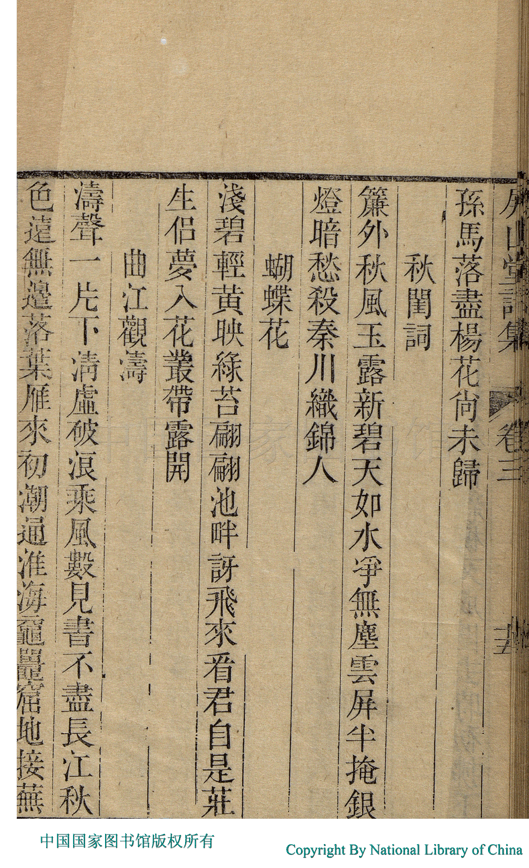 屏山堂詩集 卷三
孫馬落盡楊花尙未歸
秋閨詞
簾外秋風玉露新碧天如水凈無塵雲屏半掩銀
燈暗愁殺秦川織錦人
蝴蝶花
淺碧輕黃映綠苔翩翩池畔訝飛來看君自是莊
生侣夢入花叢帶露開
曲江觀濤
濤聲一片下清虛破浪乘風數見書不盡長江秋
色遠無邊落葉雁來初潮通淮海黿鼉窟地接蕪
中国国家图书馆版权所有
Copyright By National Library of China